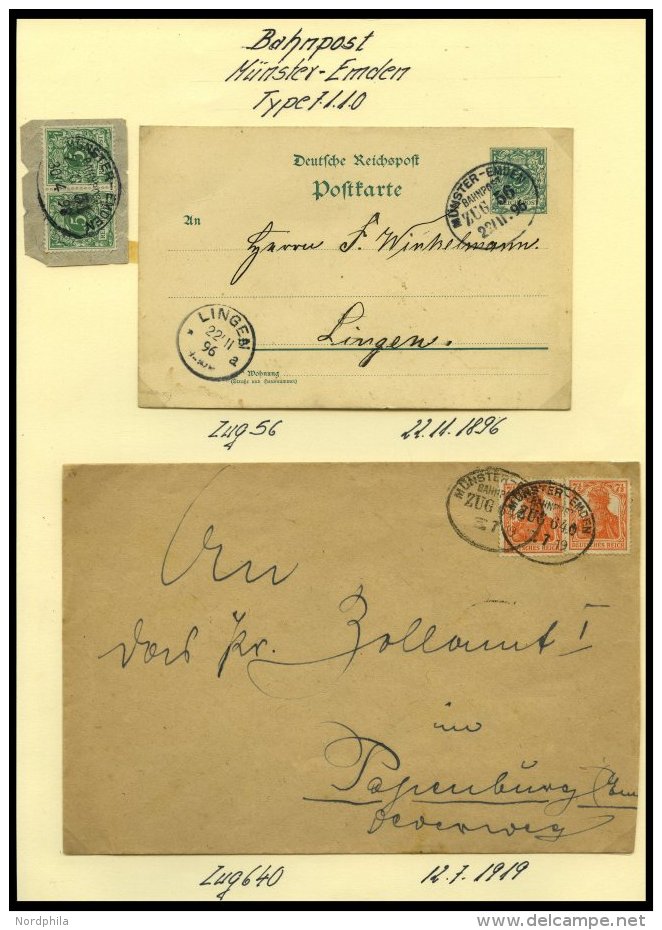 Bahnpost
Münster-Emden
Type 7.1.1.0
MÜNSTER-EMDEN
5
5
Deutsche Reichspost
Postkarte
MÜNSTER-EMDEN
BAHNPOST
ZUG 56
22/11.96
An
Herrn F. Winkelmann.
Lingen.
LINGEN
22/11
96
* a
Wohnung
(Straße und Hausnummer)
Zug 56
22.11.1896
MÜNSTER-
ZUG
MÜNSTER-EMDEN
BAHNPOST
ZUG 640
7 19
7½ 7½
DEUTSCHES REICH
An
das Pr. Zollamt I
in
Papenburg (Ems
Deverweg
Zug 640
12.7.1919
Nordphila
www.delcampe.net